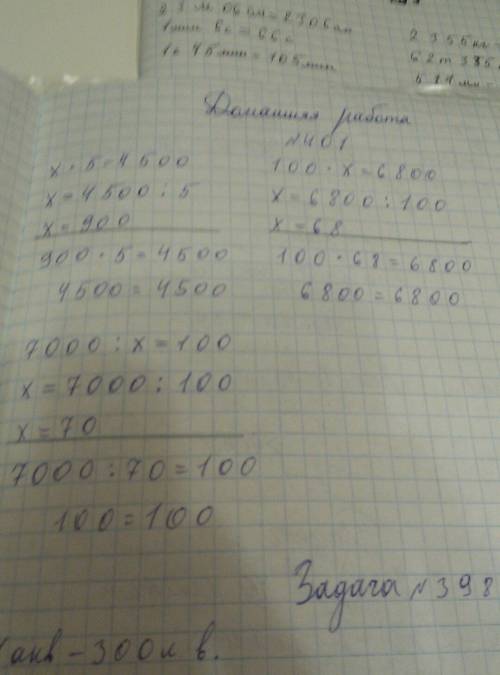 23 м 06 см = 2306 см
1 мин 6 с = 66 с
1 ч 45 мин = 105 мин
2 355 кг
62 т 385
514 мм =
Домашняя работа
№401
x · 5 = 4500
x = 4500 : 5
x = 900
900 · 5 = 4500
4500 = 4500
100 · x = 6800
x = 6800 : 100
x = 68
100 · 68 = 6800
6800 = 6800
7000 : x = 100
x = 7000 : 100
x = 70
7000 : 70 = 100
100 = 100
Задача №398
1 акв – 300 л в.